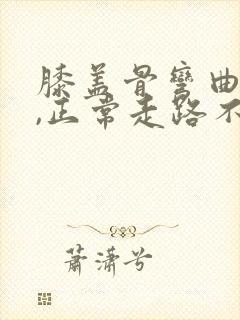 膝盖骨弯曲
,正常走路不
萧潇兮